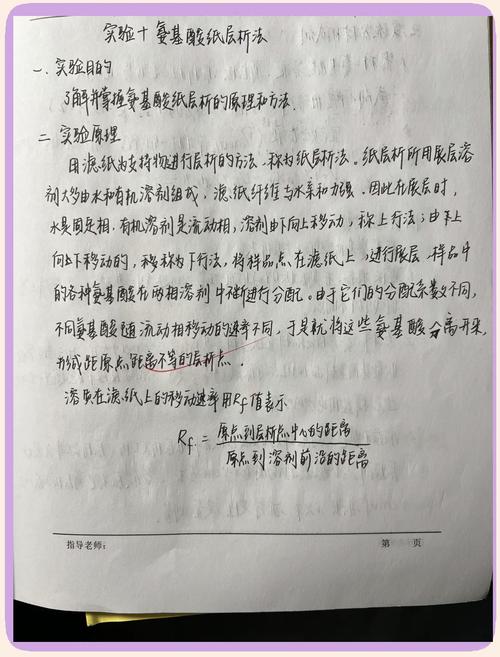 实验十 氨基酸纸层析法
一、实验目的
了解并掌握氨基酸纸层析的原理和方法.
二 实验原理
用滤纸为支持物进行层析的方法,称为纸层析法。纸层析所用展层溶
剂大多由水和有机溶剂组成,滤纸纤维与水亲和力强,因此在展层时,
水是固定相,有机溶剂是流动相,溶剂由下向上移动,称上行法;由上
向下移动的,称为下行法,将样品点在滤纸上,进行展层,样品中
的各种氨基酸在两相溶剂中不断进行分配。由于它们的分配系数不同,
不同氨基酸随流动相移动的速率不同,于是就将这些氨基酸分离开来,
形成距原点距离不等的层析点.
溶质在滤纸上的移动速率用Rf值表示
Rf = 原点到层析点中心的距离
原点到溶剂前沿的距离
指导老师: 第 页